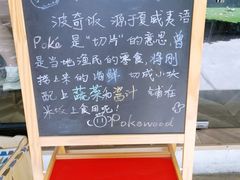 波奇饭 源于夏威夷语
Poke 是“切片”的意思,曾
是当地渔民的零食,将刚
捞上来的海鲜 切成小块
配上蔬菜和酱汁 铺在
米饭上食用呢!
Pokewood